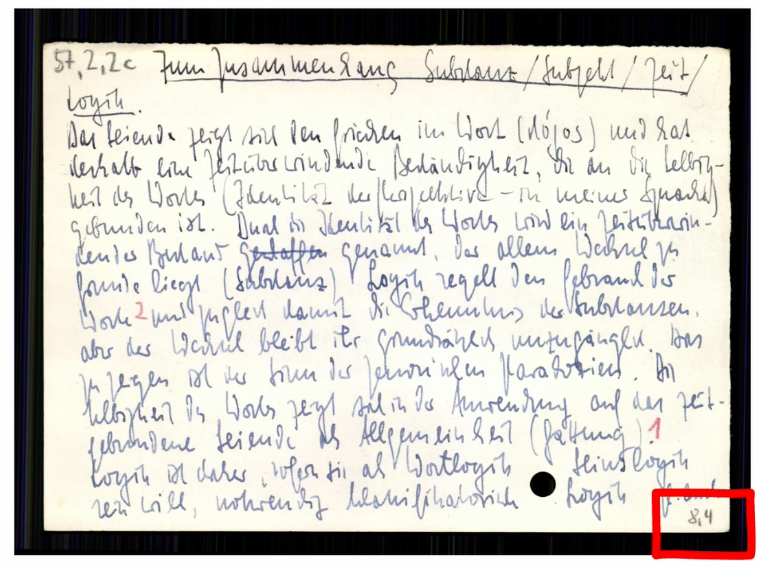 57,2,2c Zum Zusammenhang Substanz / Subjekt / Zeit /
Logik.
Das Seiende zeigt sich den Griechen im Wort (lógos) und hat
deshalb eine zeitüberwindende Beständigkeit, die an die Selbig-
keit des Wortes (Identität der Perspektive – in meiner Sprache)
gebunden ist. Durch die Identität des Wortes wird ein zeitüberwin-
dender Bestand geschaffen genannt, der allem Wechsel zu
Grunde liegt (Substanz). Logik regelt den Gebrauch der
Worte 2 und zugleich damit die Erkenntnis der Substanzen.
aber der Wechsel bleibt ihr grundsätzlich unzugänglich. Das
zu zeigen ist der Sinn der zenonischen Paradoxien. Die
Selbigkeit des Wortes zeigt sich in der Anwendung auf das zeit-
gebundene Seiende als Allgemeinheit (Gattung). 1
Logik ist daher, sofern sie als Wortlogik Seinslogik
sein will, notwendig klassifikatorische Logik
8,4